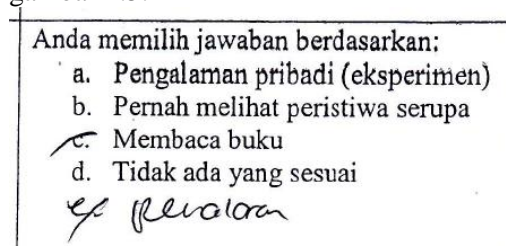 Anda memilih jawaban berdasarkan:
a. Pengalaman pribadi (eksperimen)
b. Pernah melihat peristiwa serupa
c. Membaca buku
d. Tidak ada yang sesuai
penalaran